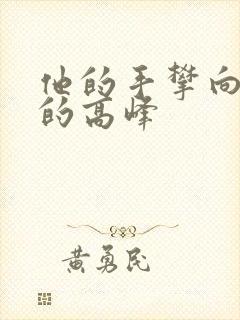 他的手攀向
的高峰
黄勇民